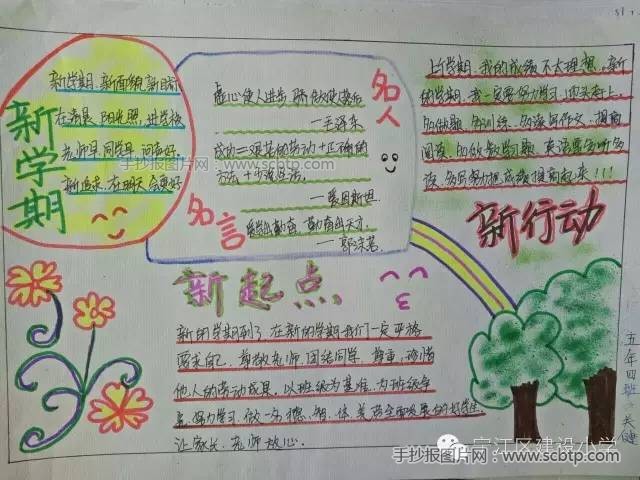 新学期
新学期,新面貌,新目标
在清晨,阳光照,进学校
老师早,同学早,问声好
新起点,在明天,会更好
名人
名言
虚心使人进步,骄傲使人落后
—毛泽东
成功=艰苦的劳动+正确的
方法+少说空话。
—爱因斯坦
聪明出于勤奋,勤奋出天才
—郭沫若
上个学期,我的成绩不太理想,新
的学期,我一定要努力学习,迎头赶上,
多做题,多训练,多读写作文,提高
阅读,多做数学习题,英语要多听多
读,多写努力把成绩提高起来!!!
新行动
新起点
新的学期到了,在新的学期我们一定严格
要求自己,尊敬老师,团结同学,尊重、珍惜
他人的劳动成果,以班级为基准,为班级争
努力学习,做一名德、智、体、美劳全面发展的好学生
让家长、老师放心。
五年四班
手抄报图片网
www.scbtp.com
宁江区建设小学
手抄报图片网 www.scbtp.com